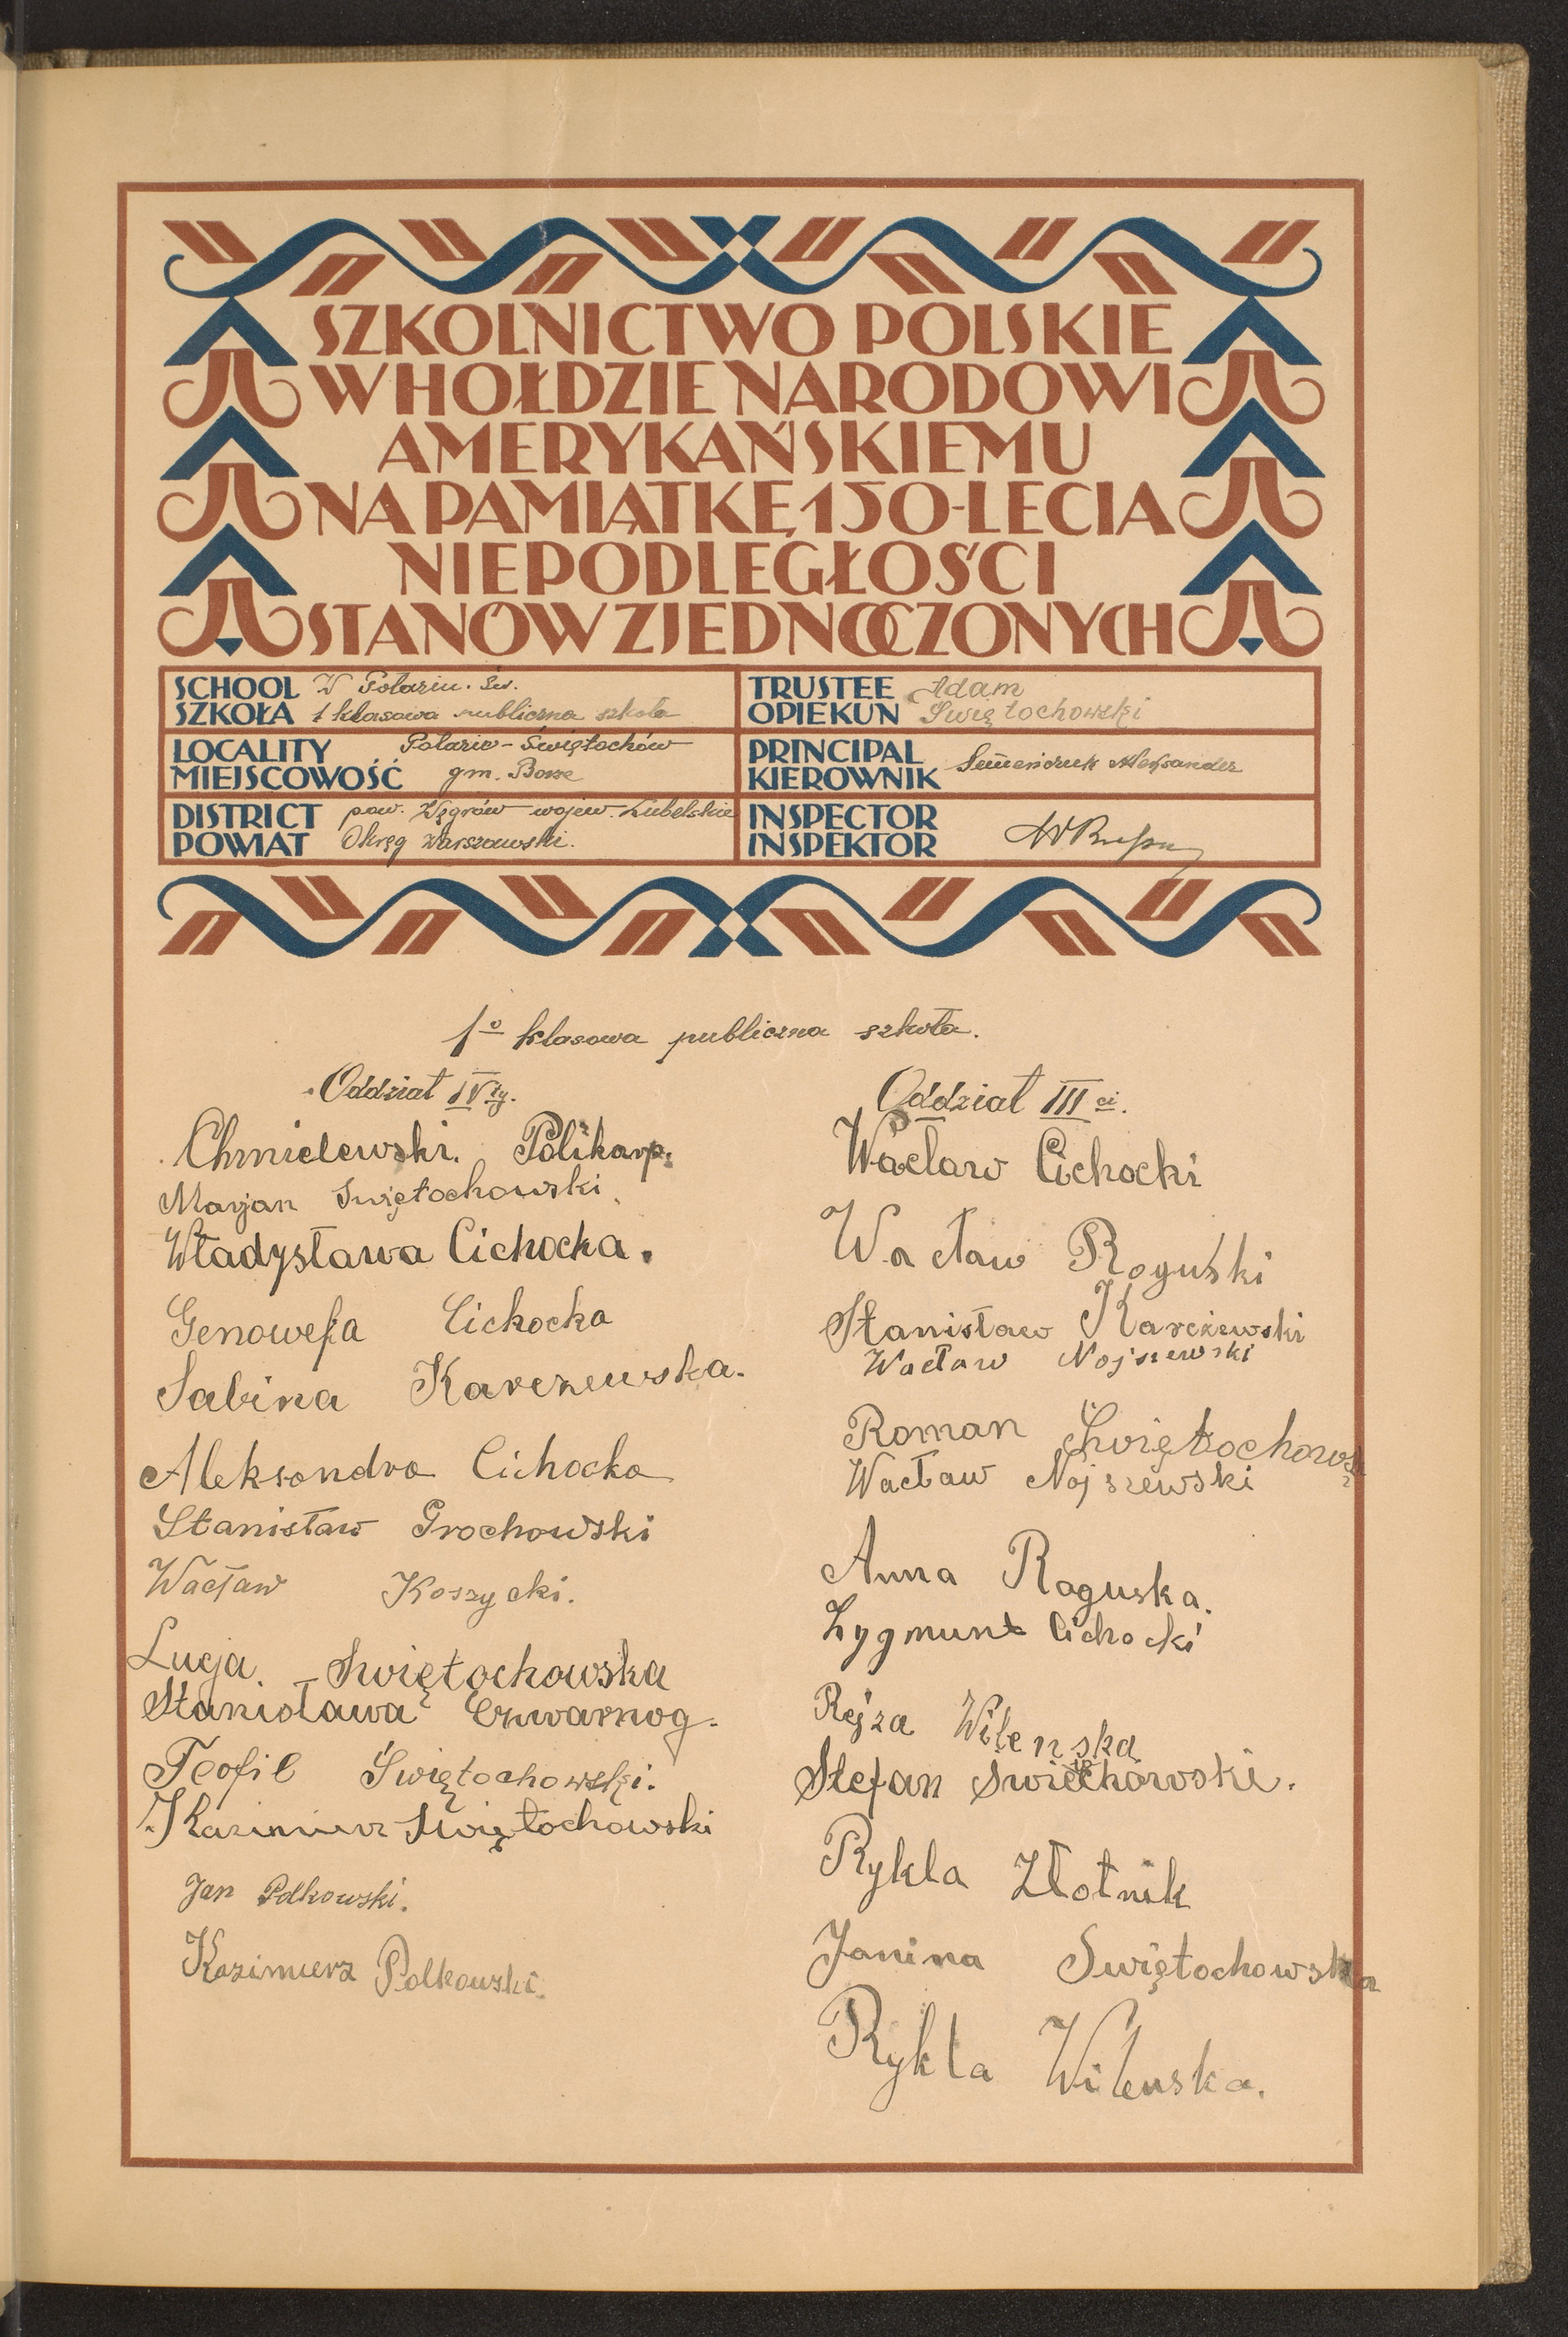 SZKOLNICTWO POLSKIE
W HOŁDZIE NARODOWI
AMERYKAŃSKIEMU
NA PAMIĄTKĘ 150-LECIA
NIEPODLEGŁOŚCI
STANÓW ZJEDNOCZONYCH
SCHOOL W Polaziu. Św.
SZKOŁA 1 klasowa publiczna szkoła
TRUSTEE Adam
OPIEKUN Święłochowski
LOCALITY Polazie-Świętochów
MIEJSCOWOŚĆ gm. Borze
PRINCIPAL
KIEROWNIK Semeńczuk Aleksander
DISTRICT pow. Węgrów wojew. Lubelskie
POWIAT Okręg Warszawski.
INSPECTOR
INSPEKTOR
1º klasowa publiczna szkoła.
Oddział IV ty.
Chmielewski. Polikarp.
Marjan Swiętochowski.
Władysława Cichocka.
Genowefa Cichocka
Sabina Karczewska.
Aleksandra Cichocka
Stanisław Grochowski
Wacław Koszycki.
Lucja Swiętochowska
Stanisława Czwarnog.
Teofil Święłochowski.
Kazimierz Swiętochowski
Jan Polkowski.
Kazimierz Polkowski.
Oddział III ci.
Wacław Cichocki
Wacław Roguski
Stanisław Karczewski
Wacław Nojszewski
Roman Świętochowski
Wacław Nojszewski
Anna Roguska.
Zygmunt Cichocki
Rejza Wilenska
Stefan Swietchowski.
Rykla Złotnik
Janina Swiętochowska
Rykla Wilenska.